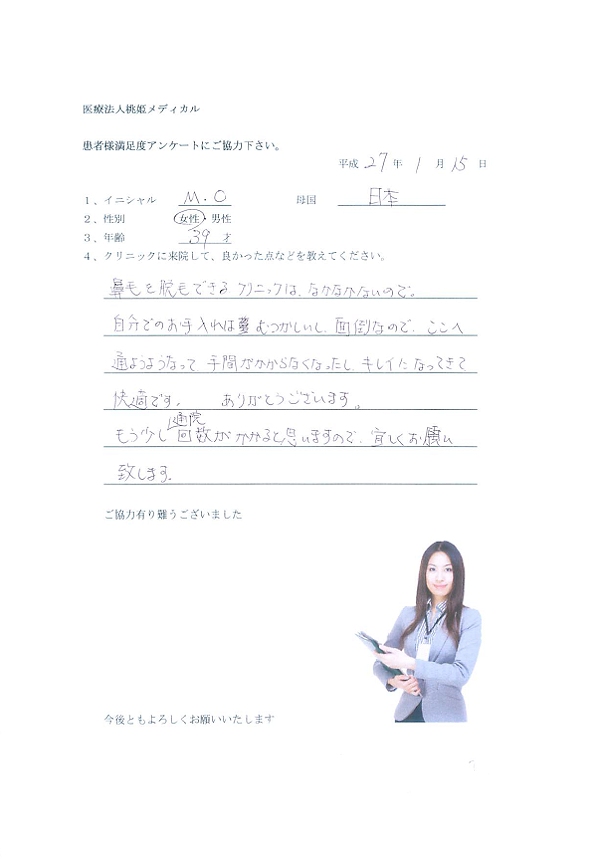 医療法人桃姫メディカル
患者様満足度アンケートにご協力下さい。
平成 27 年 1 月 15 日
1、イニシャル M.O 母国 日本
2、性別 女性・男性
3、年齢 39 才
4、クリニックに来院して、良かった点などを教えてください。
鼻毛を脱毛できるクリニックは、なかなかないので。
自分でのお手入れは むつかしいし、面倒なので、ここへ
通ようようなって 手間がかからなくなったし、キレイになってきて
快適です。 ありがとうございます。
通院
もう少し 回数がかかると思いますので、宜しくお願い
致します.
ご協力有り難うございました
今後ともよろしくお願いいたします